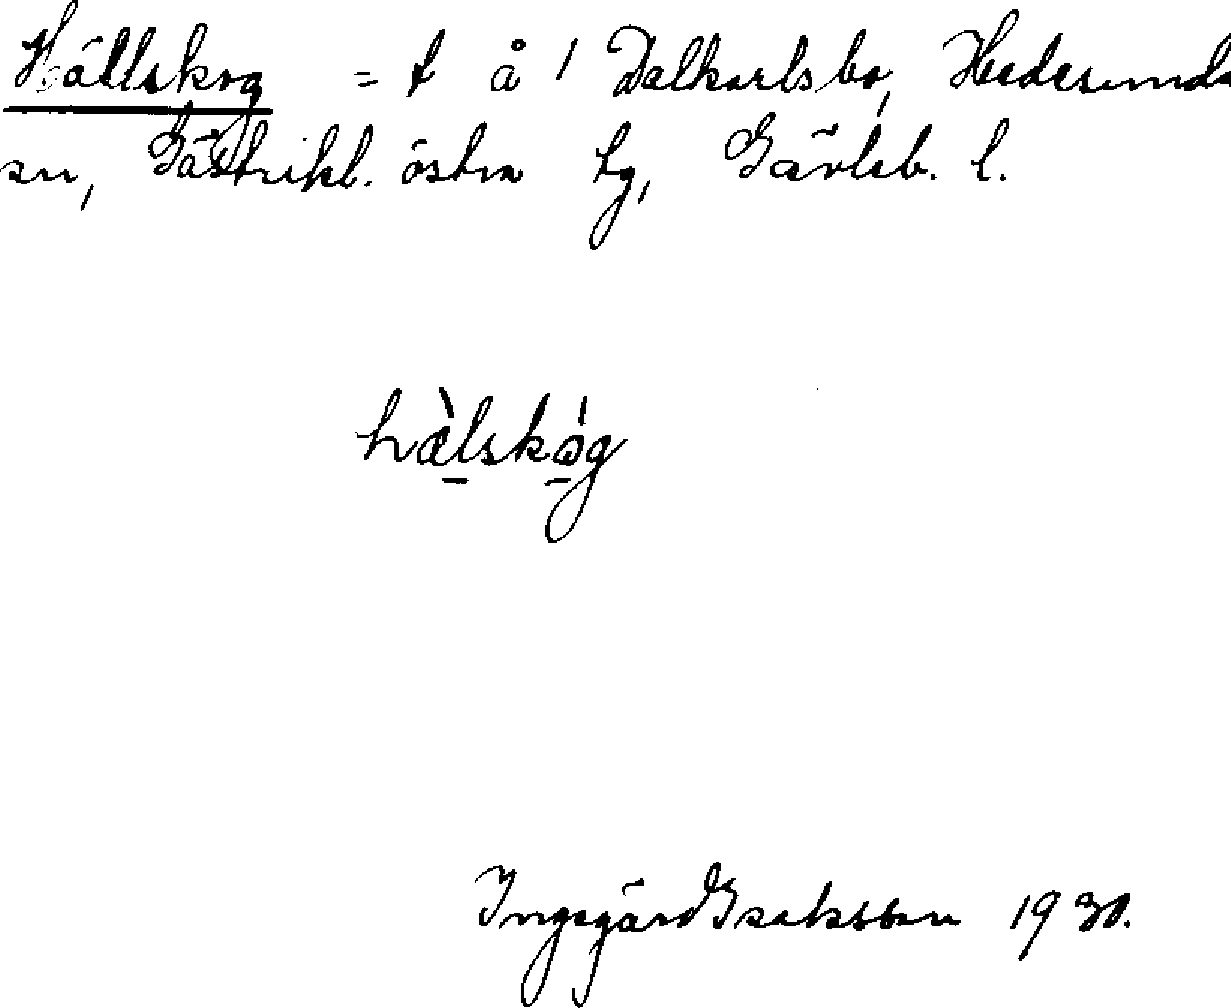 Hällskog = t å 1 Dalkarlsbo, Hedesunda
sn, Gästrikl. östra tg, Gävleb. l.
hæ̀lskó̠g
Ingegärd Isaksson 1930.